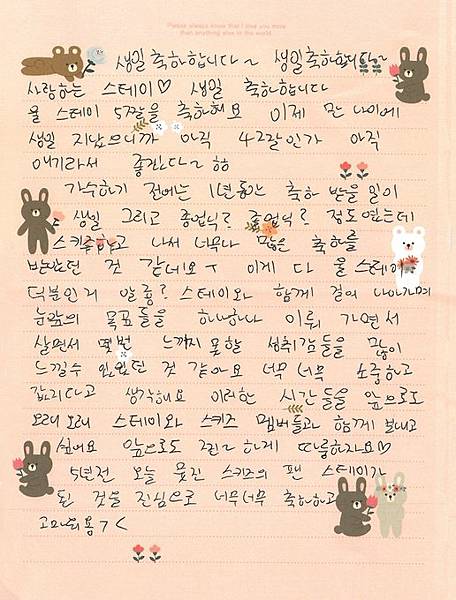 Please always know that I love you more
than anything else in the world
생일 축하합니다~ 생일축하합니다~
사랑하는 스테이♡ 생일 축하합니다
울 스테이 5살을 축하해요 이제 만 나이에
생일 지났으니까 아직 42살인가 아직
애기라서 좋긴하다~ ㅎㅎ
가수하기 전에는 1년동안 축하 받을 일이
생일 그리고 졸업식? 졸업식? 정도였는데
스키즈하고 나서 너무나 많은 축하를
받았던 것 같네요ㅜ 이게 다 울 스테이
덕분인거 알죵? 스테이와 함께 걸어 나아가며
눈앞의 목표들을 하나하나 이뤄 가면서
살면서 몇번 느끼지 못할 성취감들을 많이
느낄수 있었던 것 같아요 너무 너무 소중하고
값지다고 생각해요 이러한 시간들을 앞으로도
오래오래 스테이와 스키즈 멤버들과 함께 보내고
싶어요 앞으로도 그런~하게 따록하자요♡
5년전 오늘 멋진 스키즈의 팬 스테이가
된 것을 진심으로 너무너무 축하하고
고마워용ㄱㄴ